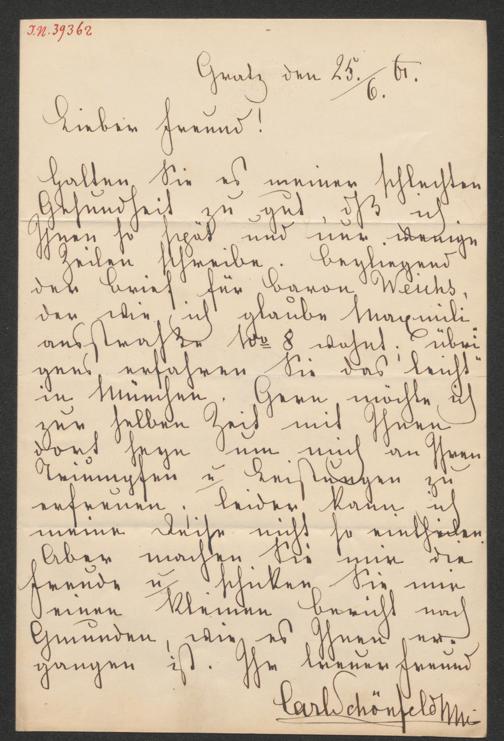 I.N. 39362
Gratz den 25./6.
Lieber Freund!
Halten Sie es meiner schlechten
Gesundheit zu gut, dß ich
Ihnen so spät und nur wenige
Zeilen schreibe. Beyliegend
der Brief für Baron Weichs,
der wie ich glaube Maximili
ansstraße No 8 wohnt. Übri
gens erfahren Sie das leicht
in München. Gern möchte ich
zur selben Zeit mit Ihnen
dort seyn um mich an Ihren
Triumpfen u Leistungen zu
erfreuen. Leider kann ich
meine Reise nicht so eintheilen.
Aber machen Sie mir die
Freude u schicken Sie mir
einen kleinen Bericht nach
Gmunden, wie es Ihnen er-
gangen ist. Ihr treuer Freund
Carl Schönfeld